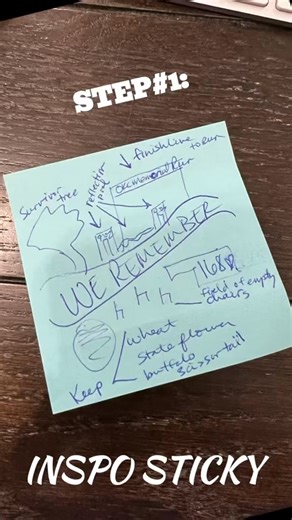 STEP#1:
finishline
to run
Survivor
tree
reflection
pool
OKC Memorial Run
9:01
9:03
WE REMEMBER
168♡
field of empty
chairs
Keep
wheat
state flower
buffalo
scissor tail
INSPO STICKY